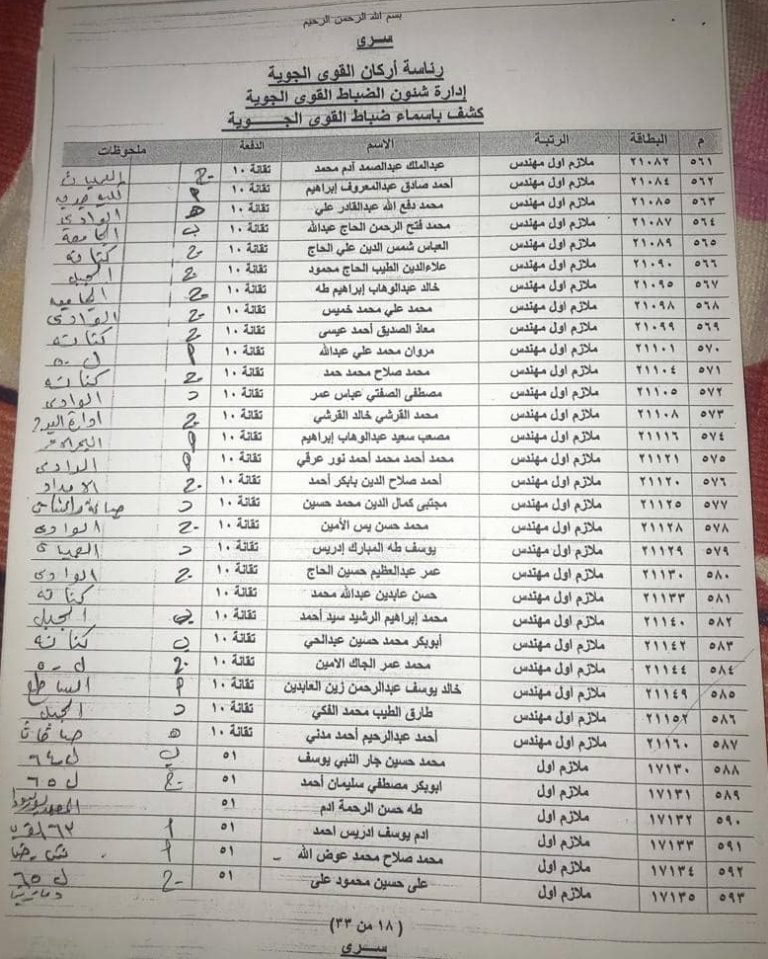 بسم الله الرحمن الرحيم
سرى
رئاسة أركان القوى الجوية
إدارة شئون الضباط القوى الجوية
كشف باسماء ضباط القوى الجـــــوية
م البطاقة الرتبة الاسم الدفعة ملحوظات
٥٦١ ٢١٠٨٢ ملازم اول مهندس عبدالملك عبدالصمد آدم محمد تقانة ١٠ ج
٥٦٢ ٢١٠٨٤ ملازم اول مهندس أحمد صادق عبدالمعروف إبراهيم تقانة ١٠
٥٦٣ ٢١٠٨٥ ملازم اول مهندس محمد دفع الله عبدالقادر علي تقانة ١٠ ه الوادى
٥٦٤ ٢١٠٨٧ ملازم اول مهندس محمد فتح الرحمن الحاج عبدالله تقانة ١٠ ب
٥٦٥ ٢١٠٨٩ ملازم اول مهندس العباس شمس الدين علي الحاج تقانة ١٠ ج كنانه
٥٦٦ ٢١٠٩٠ ملازم اول مهندس علاءالدين الطيب الحاج محمود تقانة ١٠ ج الجبل
٥٦٧ ٢١٠٩٥ ملازم اول مهندس خالد عبدالوهاب إبراهيم طه تقانة ١٠ ج
٥٦٨ ٢١٠٩٨ ملازم اول مهندس محمد علي محمد خميس تقانة ١٠ ج الوادى
٥٦٩ ٢١٠٩٩ ملازم اول مهندس معاذ الصديق أحمد عيسى تقانة ١٠ ج كنانه
٥٧٠ ٢١١٠١ ملازم اول مهندس مروان محمد علي عبدالله تقانة ١٠ ل ٥٠
٥٧١ ٢١١٠٤ ملازم اول مهندس محمد صلاح محمد حمد تقانة ١٠ ج كنانه
٥٧٢ ٢١١٠٥ ملازم اول مهندس مصطفى الصفتي عباس عمر تقانة ١٠ د الوادى
٥٧٣ ٢١١٠٨ ملازم اول مهندس محمد القرشي خالد القرشي تقانة ١٠ ج ادارة
٥٧٤ ٢١١١٦ ملازم اول مهندس مصعب سعيد عبدالوهاب إبراهيم تقانة ١٠
٥٧٥ ٢١١٢١ ملازم اول مهندس محمد أحمد محمد أحمد نور عرقي تقانة ١٠ الوادى
٥٧٦ ٢١١٢٠ ملازم اول مهندس أحمد صلاح الدين بابكر أحمد تقانة ١٠ ج الامداد
٥٧٧ ٢١١٢٥ ملازم اول مهندس مجتبى كمال الدين محمد حسين تقانة ١٠ د
٥٧٨ ٢١١٢٨ ملازم اول مهندس محمد حسن يس الأمين تقانة ١٠ ج الوادى
٥٧٩ ٢١١٢٩ ملازم اول مهندس يوسف طه المبارك إدريس تقانة ١٠ د
٥٨٠ ٢١١٣٠ ملازم اول مهندس عمر عبدالعظيم حسين الحاج تقانة ١٠ ج الوادى
٥٨١ ٢١١٣٣ ملازم اول مهندس حسن عابدين عبدالله محمد تقانة ١٠ كنانه
٥٨٢ ٢١١٤٠ ملازم اول مهندس محمد إبراهيم الرشيد سيد أحمد تقانة ١٠ ب الجبل
٥٨٣ ٢١١٤٢ ملازم اول مهندس أبوبكر محمد حسين عبدالحي تقانة ١٠ ب كنانه
٥٨٤ ٢١١٤٤ ملازم اول مهندس محمد عمر الجاك الامين تقانة ١٠ ج ل ٥٠
٥٨٥ ٢١١٤٩ ملازم اول مهندس خالد يوسف عبدالرحمن زين العابدين تقانة ١٠ الساطع
٥٨٦ ٢١١٥٢ ملازم اول مهندس طارق الطيب محمد الفكي تقانة ١٠ د الجبل
٥٨٧ ٢١١٦٠ ملازم اول مهندس أحمد عبدالرحيم أحمد مدني تقانة ١٠ ه صافات
٥٨٨ ١٧١٣٠ ملازم اول محمد حسين جار النبي يوسف ٥١ ب ل ٦٤
٥٨٩ ١٧١٣١ ملازم اول ابوبكر مصطفي سليمان أحمد ٥١ ج ل ٦٥
٥٩٠ ١٧١٣٢ ملازم اول طه حسن الرحمة ادم ٥١
٥٩١ ١٧١٣٣ ملازم اول ادم يوسف ادريس احمد ٥١ أ
٥٩٢ ١٧١٣٤ ملازم اول محمد صلاح محمد عوض الله ٥١ أ
٥٩٣ ١٧١٣٥ ملازم اول على حسين محمود على ٥١ ج ل ٦٥
( ١٨ من ٣٣ )
سرى